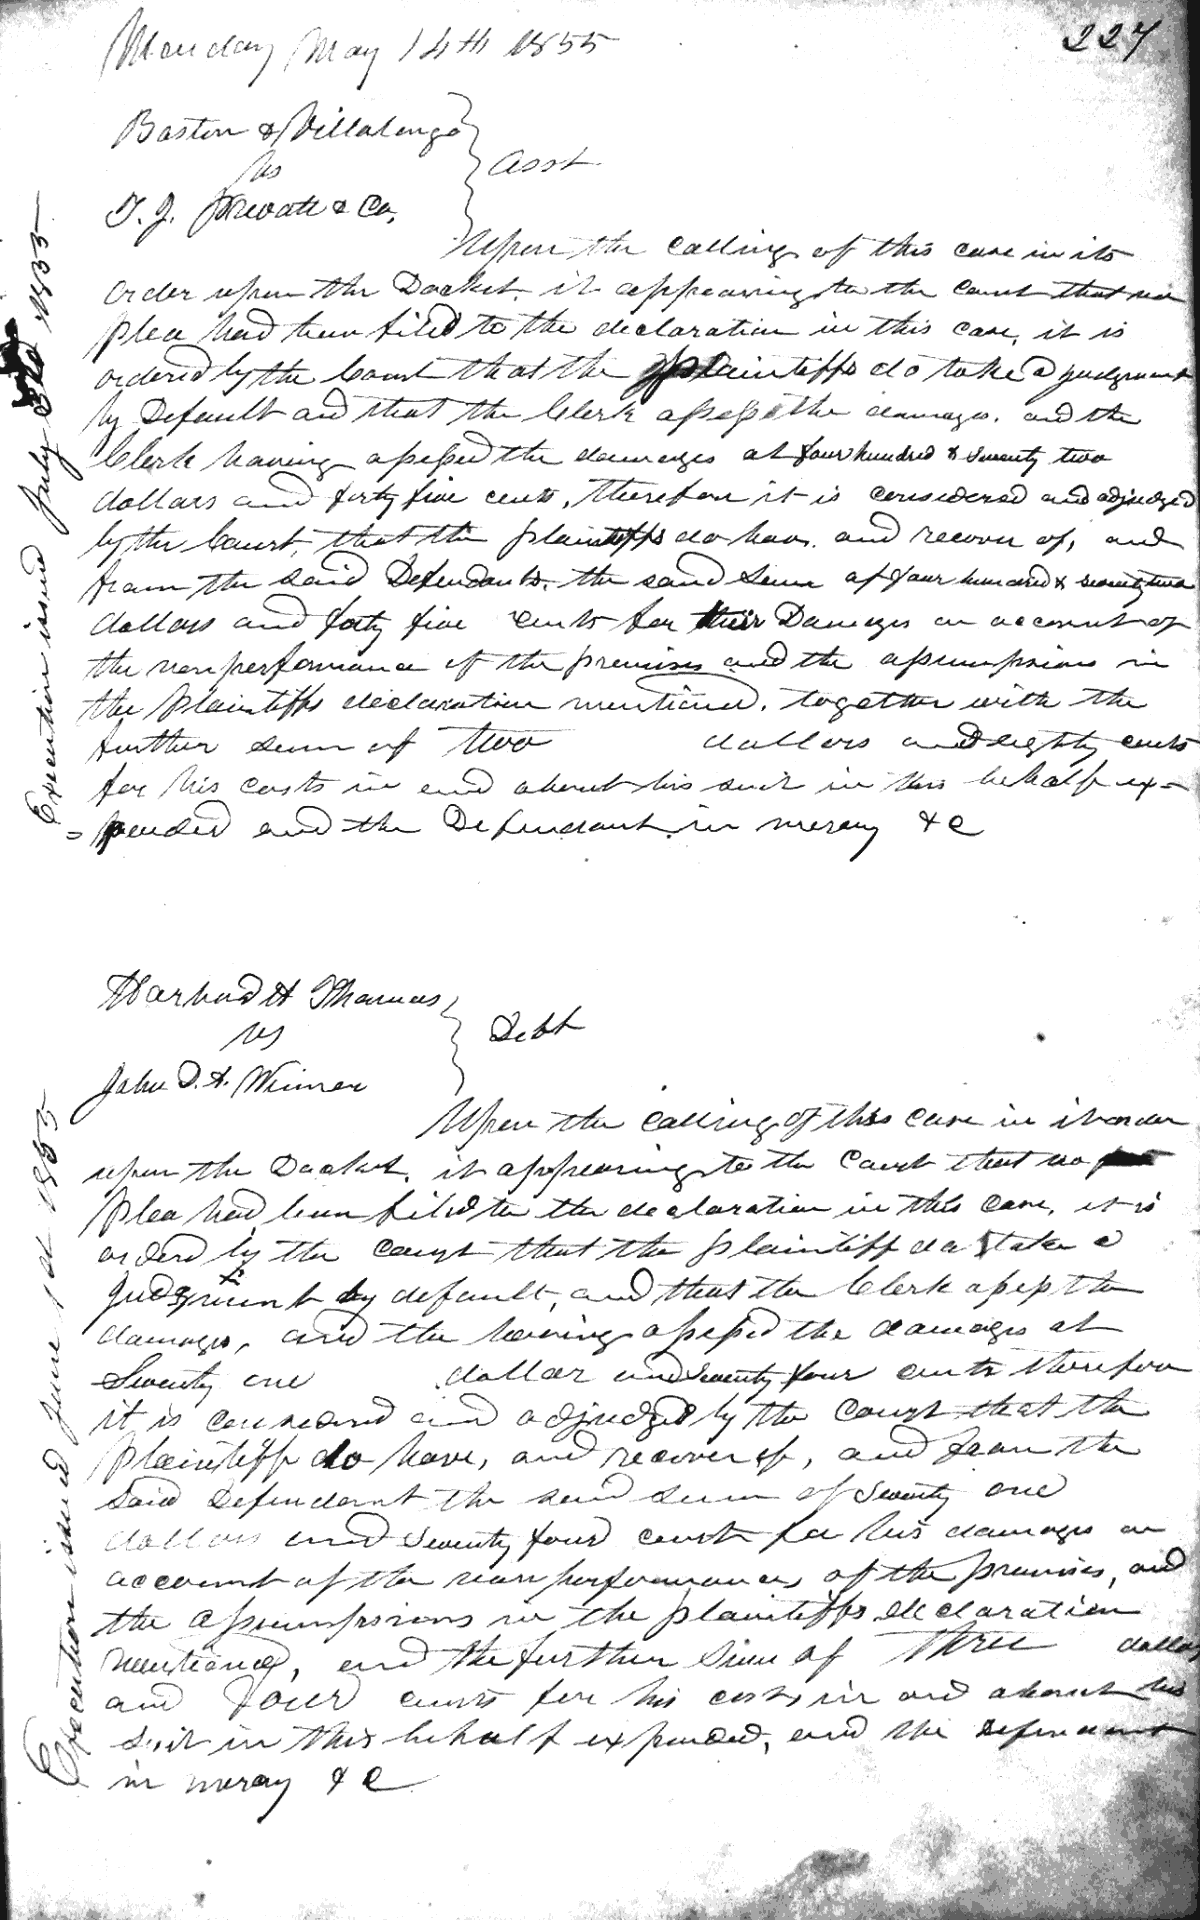 Monday May 14th 1855
227
Baston & Villalonga
vs
Asst
T. J. Prevatt & Co.
Upon the calling of this case in its
order upon the Docket. it appearing to the Court that no
plea had been filed to the declaration in this case, it is
ordered by the Court that the plaintiffs do take a judgment
by Default and that the Clerk assess the damages. and the
Clerk having assessed the damages at four hundred & seventy two
dollars and forty five cents, therefore it is considered and adjudged
by the Court, that the plaintiffs do have and recover of, and
from the said Defendants. the said sum of four hundred & seventy two
dollars and forty five cents for their Damages on account of
the nonperformance of the premises and the assumpsions in
the Plaintiffs declaration mentioned. together with the
further sum of two dollars and eighty cents
for his costs in and about his suit in this behalf ex-
=pended and the Defendant in mercy &c
Execution issued July 3rd 1855
H Thomas
vs
Debt
John D. A.
Upon the calling of this case in its order
upon the Docket. it appearing to the Court that no
plea had been filed to the declaration in this case, it is
orderd by the court that the plaintiff do take a
Judgment by default, and that the Clerk assess the
damages, and the having assessed the damages at
Seventy one dollar and seventy four cents therefore
it is considered and adjudged by the Court that the
Plaintiff do have, and recover of, and from the
said Defendant the said sum of Seventy one
dollars and seventy four cents for his damages on
account of the nonperformances of the premises, and
the assumpsions in the plaintiffs declaration
mentioned, and the further sum of Three dollars
and Four cents for his costs in and about his
suit in this behalf expended, and the Defendant
in mercy &c
Execution issued June 1st 1855